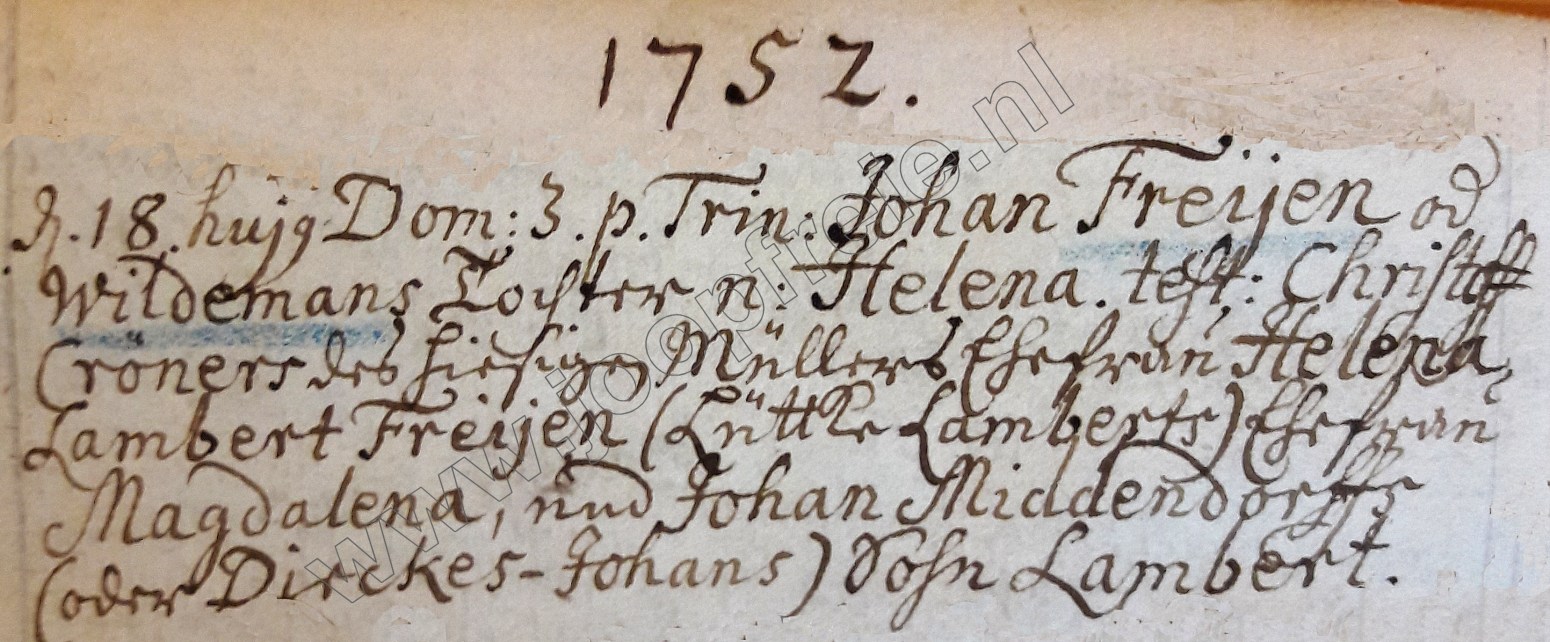 1752.
d. 18. hujg Dom: 3. p. Trin: Johan Freijen od
Wildemans Tochter n: Helena. test: Christoff
Cröners des hiesigen Müllers Ehefrau Helena,
Lambert Freijen (Lüttke Lamberts) Ehefrau
Magdalena, und Johan Middendorffs
(oder Dirckes-Johans) Sohn Lambert.
www.joopfrede.nl